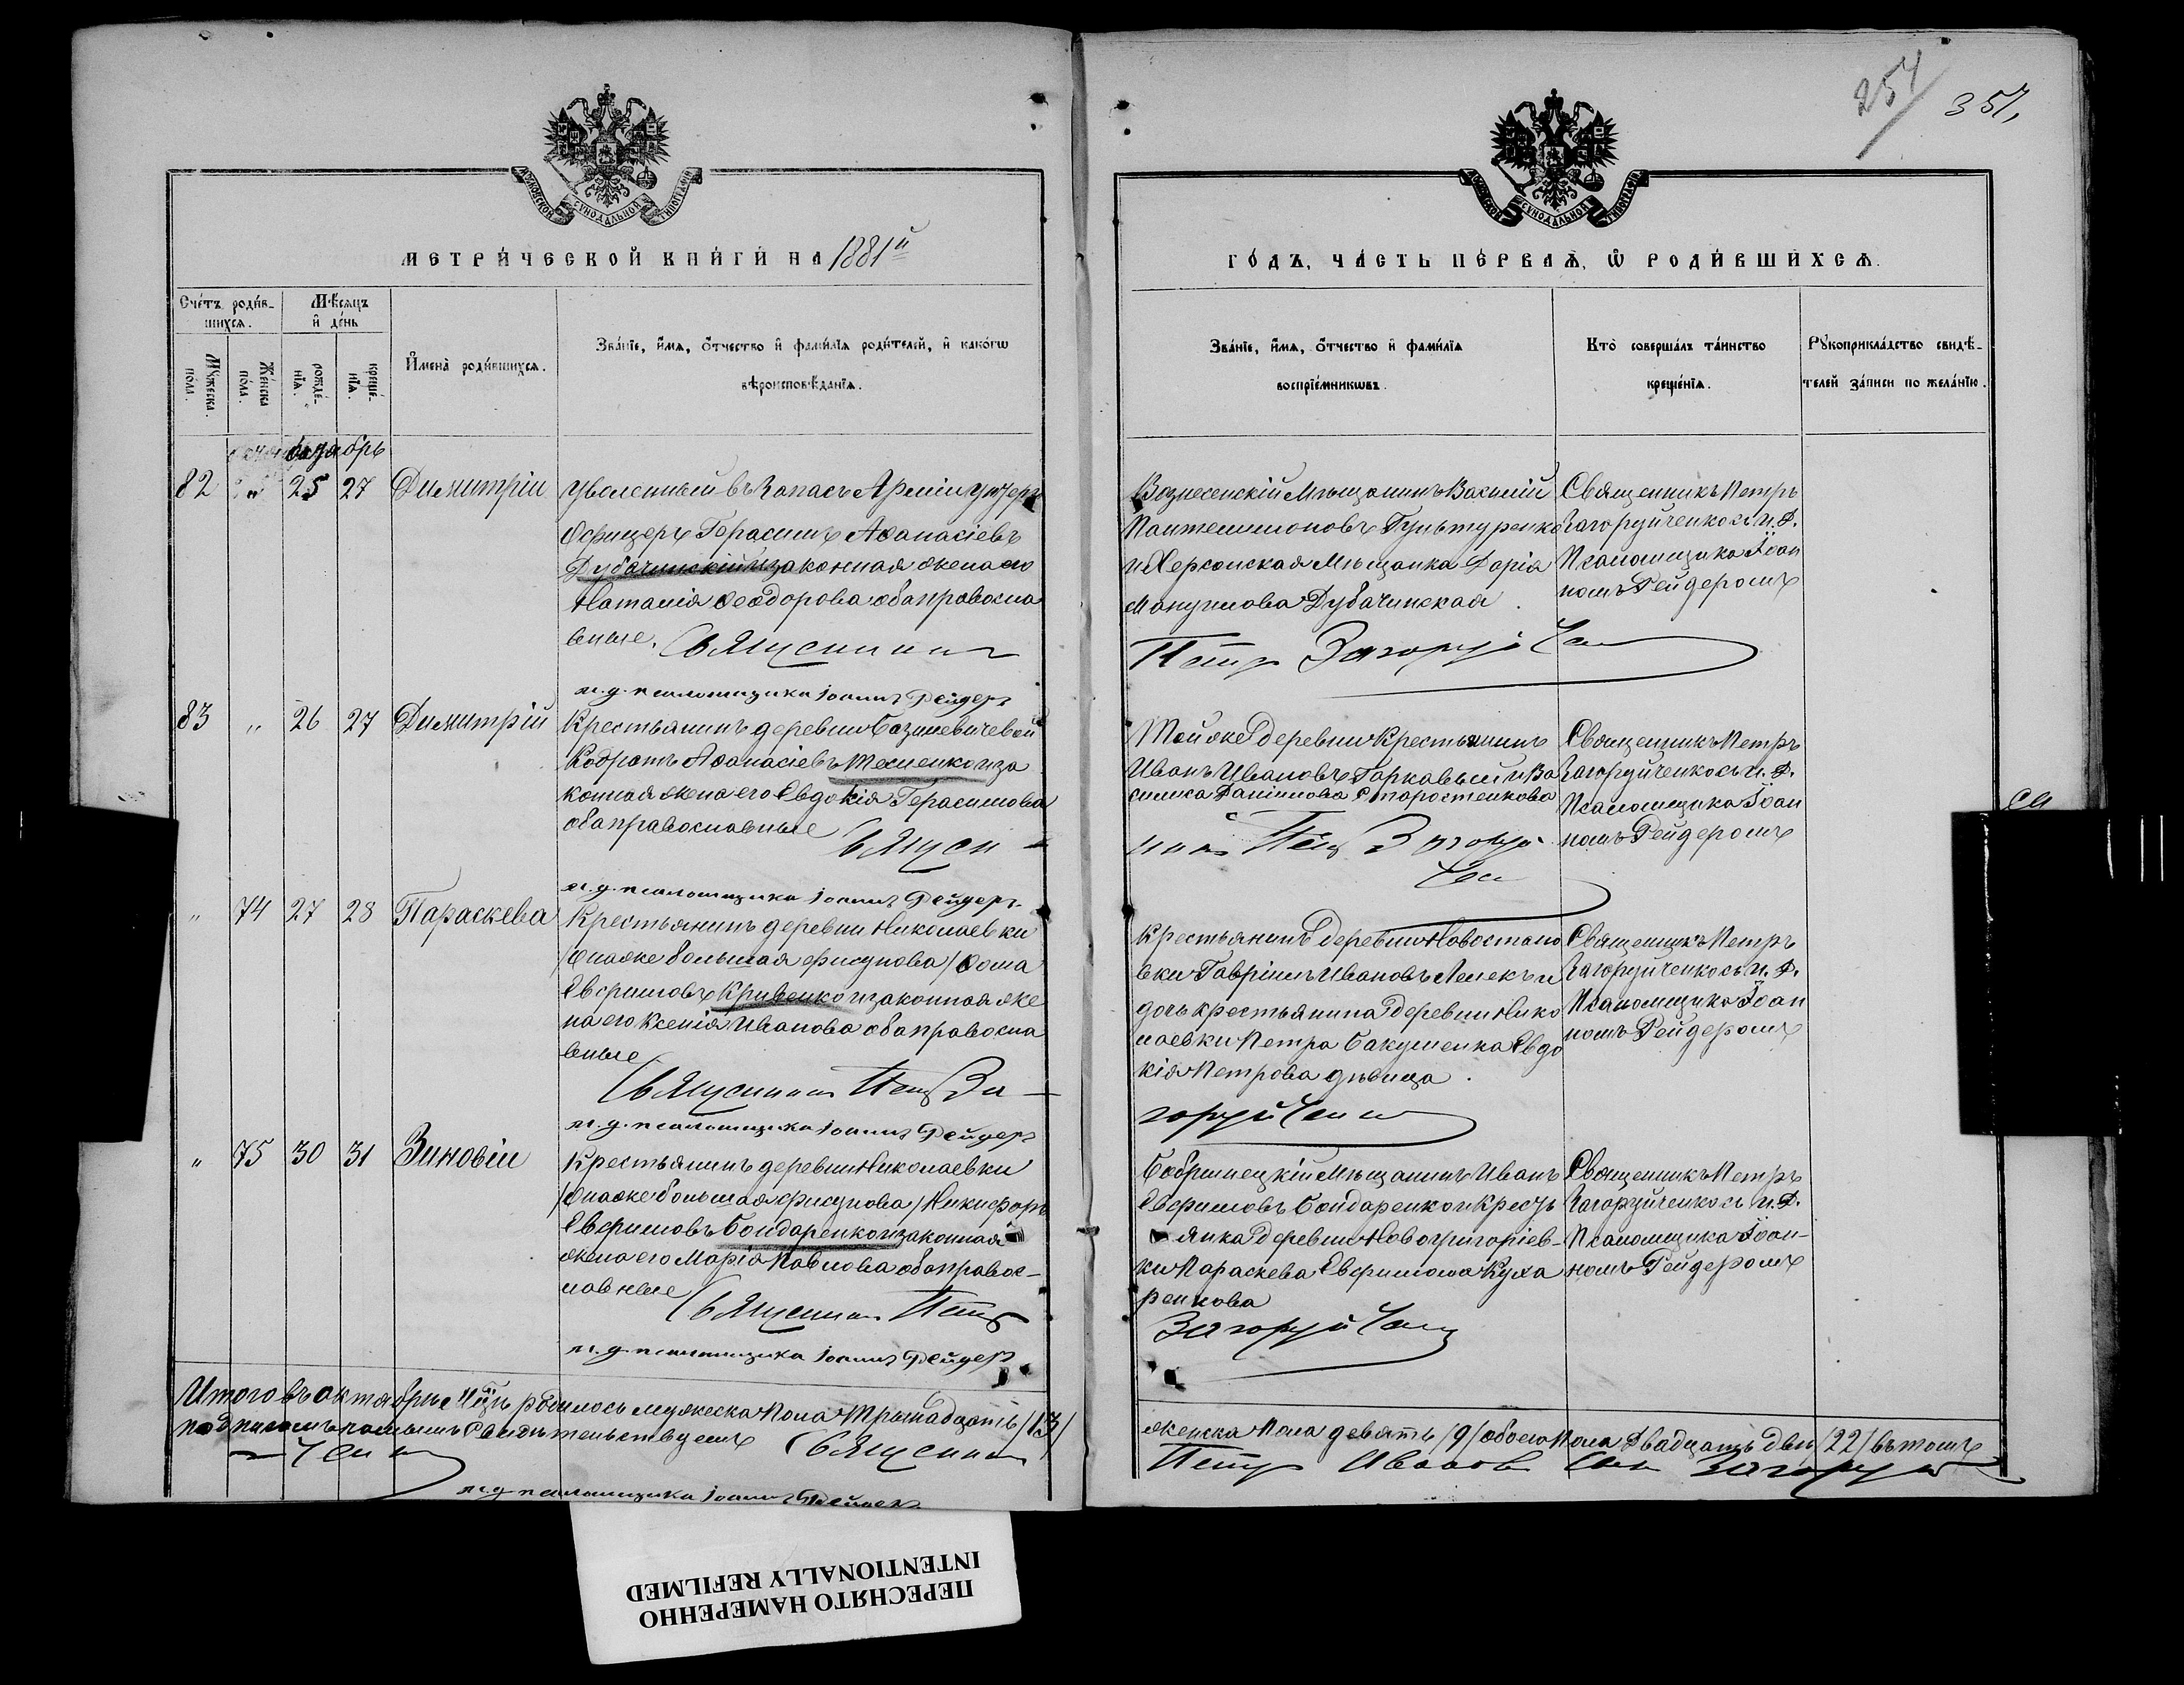 254
357,
МОСКОВСКОЙ СѴНОДАЛЬНОЙ ТИПОГРАФІИ
МОСКОВСКОЙ СѴНОДАЛЬНОЙ ТИПОГРАФІИ
МЕТРИ́ЧЕСКОЙ КНИ́ГИ НА 1881й
ГО́ДЪ, ЧА́СТЬ ПЕ́РВАѦ, Ѡ҆ РОДИ́ВШИХСѦ.
Сче́тъ роди́в-
шихсѧ.
Мѣ́сяцъ
и҆ де́нь
Мꙋ́жеска по́ла.
Же́нска по́ла.
рожде́-нїѧ.
креще́-нїѧ.
И҆мена̀ роди́вшихсѧ.
Зва́нїе, и҆́мѧ, о҆́тчество и҆ фами́лїѧ роди́телей, и҆ како́гѡ
вѣроисповѣ́данїѧ.
Зва́нїе, и҆́мѧ, о҆́тчество и҆ фами́лїѧ
воспрїе́мникѡвъ.
Кто̀ соверша́лъ та́инство
креще́нїѧ.
Рꙋкоприкла́дство свидѣ́-
телей за́писи по жела́нїю.
82 " 25 27 Димитрій
уволенный въ Запасъ Арміи унтеръ
Офицеръ Герасимъ Аѳанасіевъ
Дубачинскій и законная жена его
Наталія Ѳеодорова оба правосла
вные. Священник
и. д. псаломщика Іоаннъ Рейдеръ
Вознесенскій Мѣщанинъ Василій
Пантелимоновъ Гультуренко
и Херсонская Мѣщанка Дарія
Мануилова Дубачинская.
Петръ Загоруйчен
Священникъ Петръ
Загоруйченко съ и. д.
Псаломщика Іоан
номъ Рейдеромъ
83 " 26 27 Димитрій
Крестьянинъ деревни Базилевичевой
Кодратъ Аѳанасіевъ Тесленко и за
конная жена его Евдокія Герасимова
оба православные Священ-
и. д. псаломщика Іоаннъ Рейдеръ
Той же деревни Крестьянинъ
Иванъ Ивановъ Гаркавый и Ва
силиса Даніилова Старостенкова
никъ Петр Загоруй
чен
Священникъ Петръ
Загоруйченко съ и. д.
Псаломщика Іоан
номъ Рейдеромъ
" 74 27 28 Параскева
Крестьянинъ деревни Николаевки
/Она же большая фисунова/ Ѳома
Евфимовъ Кривенко и законная же
на его Ксенія Иванова оба правосла
вные
Священник Петр За-
и. д. псаломщика Іоаннъ Рейдеръ
Крестьянинъ деревни Новостано
вки Гавріилъ Ивановъ Лелекъ и
дочь крестьянина деревни Нико
лаевки Петра Бакуменка Евдо
кія Петрова дѣвица.
горуйченко
Священникъ Петръ
Загоруйченко съ и. д.
Псаломщика Іоан
номъ Рейдеромъ
" 75 30 31 Зиновіи
Крестьянинъ деревни Николаевки
/Она же большая фисунова/ Никифоръ
Евфимовъ Бондаренко и законная
жена его Марія Павлова оба правос-
лавные Священник Петр
и. д. псаломщика Іоаннъ Рейдеръ
Бобринецкій Мѣщанинъ Иванъ
Евфимовъ Бондаренко и Кресть
янка деревни Новогригоріев-
ки Параскева Евфимова Куха
ренкова
Загоруйчен
Священникъ Петръ
Загоруйченко съ и. д.
Псаломщика Іоан-
номъ Рейдеромъ
Итого въ октябрѣ мцѣ родилось мужеска пола тринадцать /13/
женска пола девять /9/ обоего пола двадцать два /22/ въ томъ
подписомъ нашимъ свидѣтельствуемъ Священник
Петр Иванов Загоруй
ченко
и. д. псаломщика Іоаннъ Рейдеръ
ПЕРЕСНЯТО НАМЕРЕННО
INTENTIONALLY REFILMED